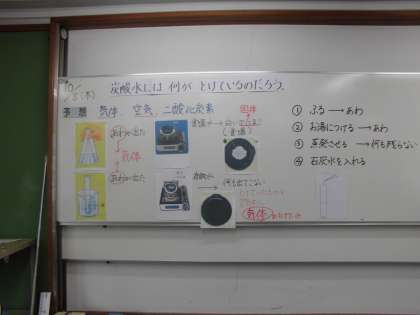 10/5(木)
炭酸水には何がとけているのだろう。
予想 気体、空気、二酸化炭素
あわが出た
気体
あわが出た
固体
食塩水→白い
(食塩)
炭酸水→何も出てこない
気体
① ふる → あわ
② お湯につける → あわ
③ 蒸発させる → 何も残らない
④ 石灰水を入れる